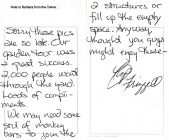 Note to Barbara from the Owner...
Sorry these pics
are so late. Our
garden tour was
a great success.
2,000 people went
through the yard.
Loads of compli-
ments.
We may need some
sort of monkey
bars to join the
2 structures or
fill up the empty
space. Anyway,
thought you guys
might enjoy these -